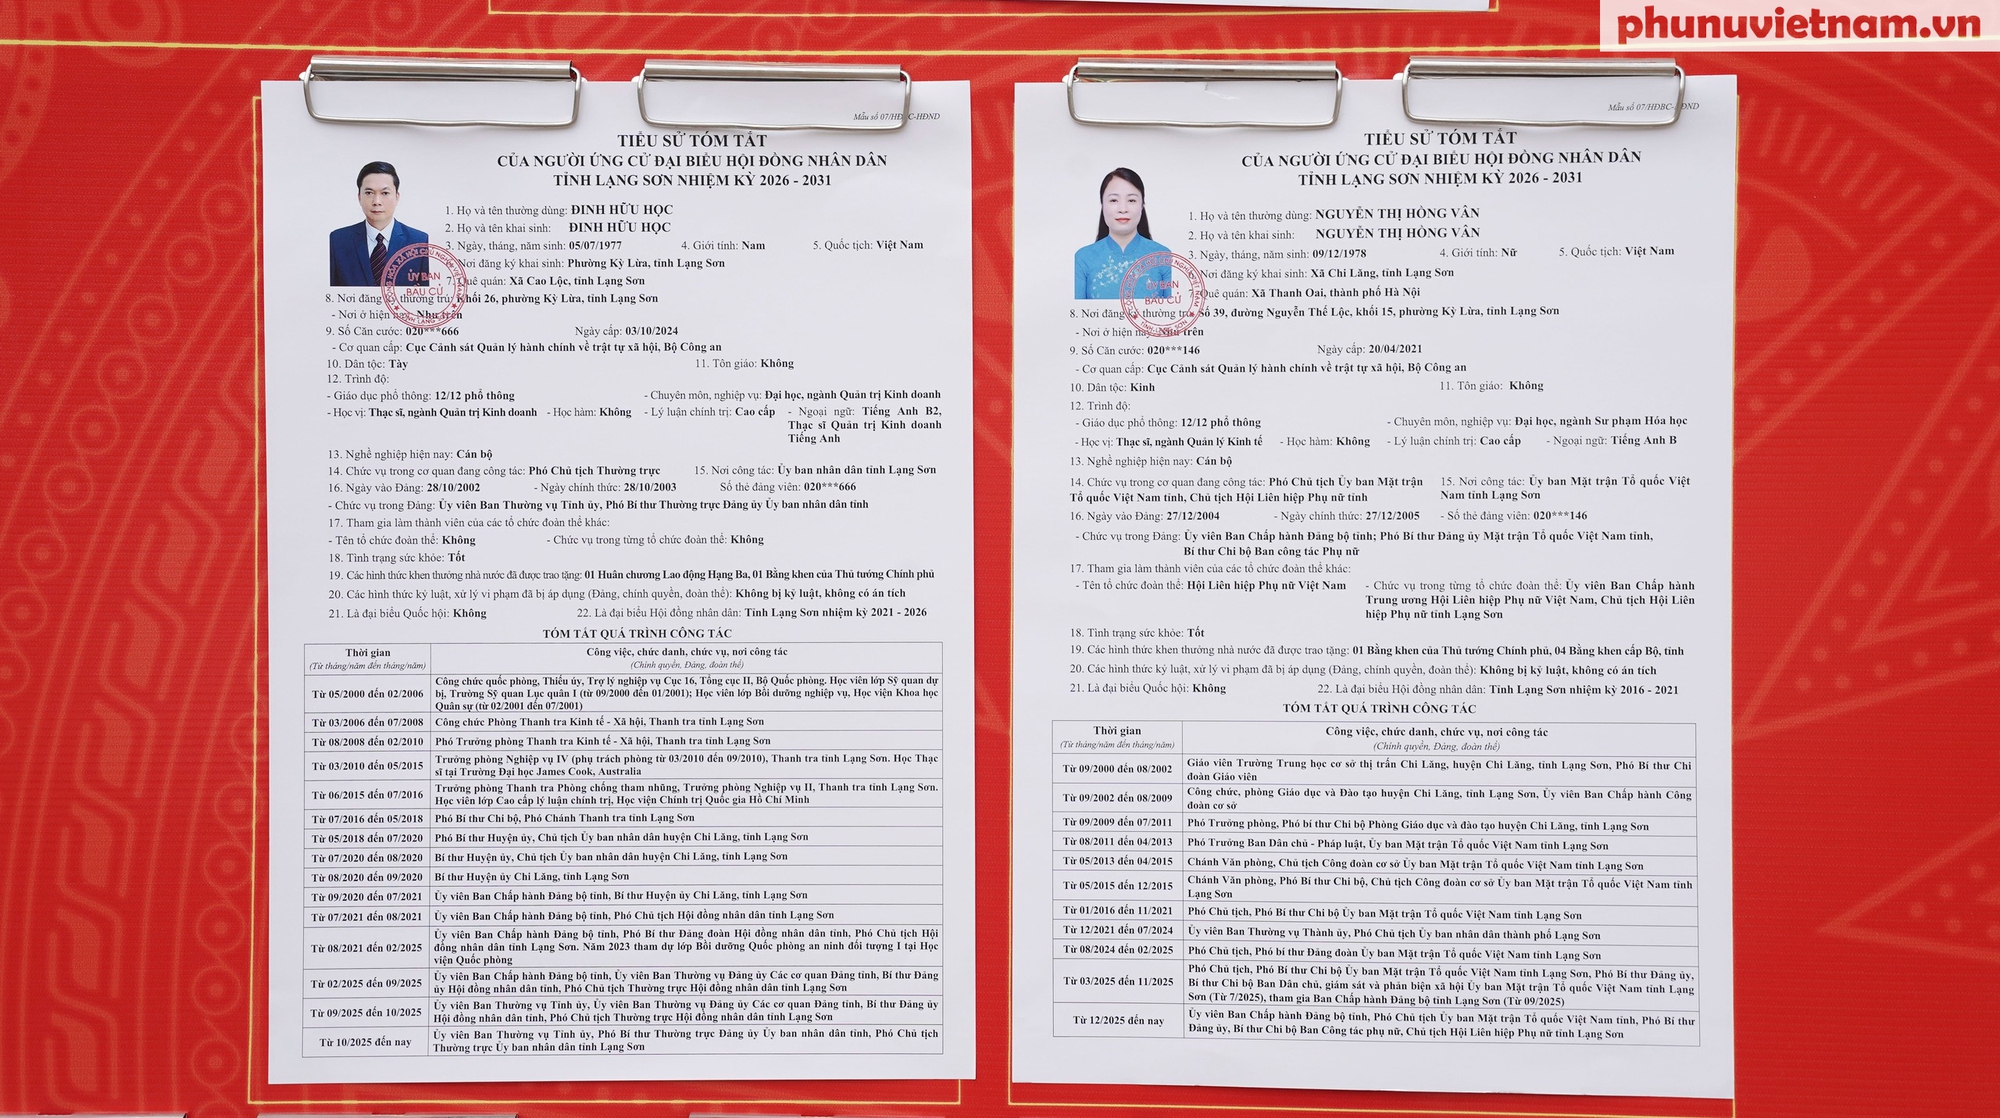 phunuvietnam.vn
Mẫu số 07/HĐBC-HĐND
TIỂU SỬ TÓM TẮT
CỦA NGƯỜI ỨNG CỬ ĐẠI BIỂU HỘI ĐỒNG NHÂN DÂN
TỈNH LẠNG SƠN NHIỆM KỲ 2026 - 2031
1. Họ và tên thường dùng: ĐINH HỮU HỌC
2. Họ và tên khai sinh: ĐINH HỮU HỌC
3. Ngày, tháng, năm sinh: 05/07/1977 4. Giới tính: Nam 5. Quốc tịch: Việt Nam
Nơi đăng ký khai sinh: Phường Kỳ Lừa, tỉnh Lạng Sơn
7. Quê quán: Xã Cao Lộc, tỉnh Lạng Sơn
ỦY BAN
BẦU CỬ
8. Nơi đăng ký thường trú: Khối 26, phường Kỳ Lừa, tỉnh Lạng Sơn
- Nơi ở hiện nay: Như trên
9. Số Căn cước: 020***666 Ngày cấp: 03/10/2024
- Cơ quan cấp: Cục Cảnh sát Quản lý hành chính về trật tự xã hội, Bộ Công an
10. Dân tộc: Tày 11. Tôn giáo: Không
12. Trình độ:
- Giáo dục phổ thông: 12/12 phổ thông - Chuyên môn, nghiệp vụ: Đại học, ngành Quản trị Kinh doanh
- Học vị: Thạc sĩ, ngành Quản trị Kinh doanh - Học hàm: Không - Lý luận chính trị: Cao cấp - Ngoại ngữ: Tiếng Anh B2,
Thạc sĩ Quản trị Kinh doanh
Tiếng Anh
13. Nghề nghiệp hiện nay: Cán bộ
14. Chức vụ trong cơ quan đang công tác: Phó Chủ tịch Thường trực 15. Nơi công tác: Ủy ban nhân dân tỉnh Lạng Sơn
16. Ngày vào Đảng: 28/10/2002 - Ngày chính thức: 28/10/2003 Số thẻ đảng viên: 020***666
- Chức vụ trong Đảng: Ủy viên Ban Thường vụ Tỉnh ủy, Phó Bí thư Thường trực Đảng ủy Ủy ban nhân dân tỉnh
17. Tham gia làm thành viên của các tổ chức đoàn thể khác:
- Tên tổ chức đoàn thể: Không - Chức vụ trong từng tổ chức đoàn thể: Không
18. Tình trạng sức khỏe: Tốt
19. Các hình thức khen thưởng nhà nước đã được trao tặng: 01 Huân chương Lao động Hạng Ba, 01 Bằng khen của Thủ tướng Chính phủ
20. Các hình thức kỷ luật, xử lý vi phạm đã bị áp dụng (Đảng, chính quyền, đoàn thể): Không bị kỷ luật, không có án tích
21. Là đại biểu Quốc hội: Không 22. Là đại biểu Hội đồng nhân dân: Tỉnh Lạng Sơn nhiệm kỳ 2021 - 2026
TÓM TẮT QUÁ TRÌNH CÔNG TÁC
Thời gian Công việc, chức danh, chức vụ, nơi công tác
(Từ tháng/năm đến tháng/năm) (Chính quyền, Đảng, đoàn thể)
Từ 05/2000 đến 02/2006 Công chức quốc phòng, Thiếu úy, Trợ lý nghiệp vụ Cục 16, Tổng cục II, Bộ Quốc phòng. Học viên lớp Sỹ quan dự
bị, Trường Sỹ quan Lục quân I (từ 09/2000 đến 01/2001); Học viên lớp Bồi dưỡng nghiệp vụ, Học viện Khoa học
Quân sự (từ 02/2001 đến 07/2001)
Từ 03/2006 đến 07/2008 Công chức Phòng Thanh tra Kinh tế - Xã hội, Thanh tra tỉnh Lạng Sơn
Từ 08/2008 đến 02/2010 Phó Trưởng phòng Thanh tra Kinh tế - Xã hội, Thanh tra tỉnh Lạng Sơn
Từ 03/2010 đến 05/2015 Trưởng phòng Nghiệp vụ IV (phụ trách phòng từ 03/2010 đến 09/2010), Thanh tra tỉnh Lạng Sơn. Học Thạc
sĩ tại Trường Đại học James Cook, Australia
Từ 06/2015 đến 07/2016 Trưởng phòng Thanh tra Phòng chống tham nhũng, Trưởng phòng Nghiệp vụ II, Thanh tra tỉnh Lạng Sơn.
Học viên lớp Cao cấp lý luận chính trị, Học viện Chính trị Quốc gia Hồ Chí Minh
Từ 07/2016 đến 05/2018 Phó Bí thư Chi bộ, Phó Chánh Thanh tra tỉnh Lạng Sơn
Từ 05/2018 đến 07/2020 Phó Bí thư Huyện ủy, Chủ tịch Ủy ban nhân dân huyện Chi Lăng, tỉnh Lạng Sơn
Từ 07/2020 đến 08/2020 Bí thư Huyện ủy, Chủ tịch Ủy ban nhân dân huyện Chi Lăng, tỉnh Lạng Sơn
Từ 08/2020 đến 09/2020 Bí thư Huyện ủy Chi Lăng, tỉnh Lạng Sơn
Từ 09/2020 đến 07/2021 Ủy viên Ban Chấp hành Đảng bộ tỉnh, Bí thư Huyện ủy Chi Lăng, tỉnh Lạng Sơn
Từ 07/2021 đến 08/2021 Ủy viên Ban Chấp hành Đảng bộ tỉnh, Phó Chủ tịch Hội đồng nhân dân tỉnh Lạng Sơn
Từ 08/2021 đến 02/2025 Ủy viên Ban Chấp hành Đảng bộ tỉnh, Phó Bí thư Đảng đoàn Hội đồng nhân dân tỉnh, Phó Chủ tịch Hội
đồng nhân dân tỉnh Lạng Sơn. Năm 2023 tham dự lớp Bồi dưỡng Quốc phòng an ninh đối tượng I tại Học
viện Quốc phòng
Từ 02/2025 đến 09/2025 Ủy viên Ban Chấp hành Đảng bộ tỉnh, Ủy viên Ban Thường vụ Đảng ủy Các cơ quan Đảng tỉnh, Bí thư Đảng
ủy Hội đồng nhân dân tỉnh, Phó Chủ tịch Thường trực Hội đồng nhân dân tỉnh Lạng Sơn
Từ 09/2025 đến 10/2025 Ủy viên Ban Thường vụ Tỉnh ủy, Ủy viên Ban Thường vụ Đảng ủy Các cơ quan Đảng tỉnh, Bí thư Đảng ủy
Hội đồng nhân dân tỉnh, Phó Chủ tịch Thường trực Hội đồng nhân dân tỉnh Lạng Sơn
Từ 10/2025 đến nay Ủy viên Ban Thường vụ Tỉnh ủy, Phó Bí thư Thường trực Đảng ủy Ủy ban nhân dân tỉnh, Phó Chủ tịch
Thường trực Ủy ban nhân dân tỉnh Lạng Sơn
Mẫu số 07/HĐBC-HĐND
TIỂU SỬ TÓM TẮT
CỦA NGƯỜI ỨNG CỬ ĐẠI BIỂU HỘI ĐỒNG NHÂN DÂN
TỈNH LẠNG SƠN NHIỆM KỲ 2026 - 2031
1. Họ và tên thường dùng: NGUYỄN THỊ HỒNG VÂN
2. Họ và tên khai sinh: NGUYỄN THỊ HỒNG VÂN
3. Ngày, tháng, năm sinh: 09/12/1978 4. Giới tính: Nữ 5. Quốc tịch: Việt Nam
Nơi đăng ký khai sinh: Xã Chi Lăng, tỉnh Lạng Sơn
Quê quán: Xã Thanh Oai, thành phố Hà Nội
ỦY BAN
BẦU CỬ
8. Nơi đăng ký thường trú: Số 39, đường Nguyễn Thế Lộc, khối 15, phường Kỳ Lừa, tỉnh Lạng Sơn
- Nơi ở hiện nay: Như trên
9. Số Căn cước: 020***146 Ngày cấp: 20/04/2021
- Cơ quan cấp: Cục Cảnh sát Quản lý hành chính về trật tự xã hội, Bộ Công an
10. Dân tộc: Kinh 11. Tôn giáo: Không
12. Trình độ:
- Giáo dục phổ thông: 12/12 phổ thông - Chuyên môn, nghiệp vụ: Đại học, ngành Sư phạm Hóa học
- Học vị: Thạc sĩ, ngành Quản lý Kinh tế - Học hàm: Không - Lý luận chính trị: Cao cấp - Ngoại ngữ: Tiếng Anh B
13. Nghề nghiệp hiện nay: Cán bộ
14. Chức vụ trong cơ quan đang công tác: Phó Chủ tịch Ủy ban Mặt trận 15. Nơi công tác: Ủy ban Mặt trận Tổ quốc Việt
Tổ quốc Việt Nam tỉnh, Chủ tịch Hội Liên hiệp Phụ nữ tỉnh Nam tỉnh Lạng Sơn
16. Ngày vào Đảng: 27/12/2004 - Ngày chính thức: 27/12/2005 - Số thẻ đảng viên: 020***146
- Chức vụ trong Đảng: Ủy viên Ban Chấp hành Đảng bộ tỉnh; Phó Bí thư Đảng ủy Mặt trận Tổ quốc Việt Nam tỉnh,
Bí thư Chi bộ Ban công tác Phụ nữ
17. Tham gia làm thành viên của các tổ chức đoàn thể khác:
- Tên tổ chức đoàn thể: Hội Liên hiệp Phụ nữ Việt Nam - Chức vụ trong từng tổ chức đoàn thể: Ủy viên Ban Chấp hành
Trung ương Hội Liên hiệp Phụ nữ Việt Nam, Chủ tịch Hội Liên
hiệp Phụ nữ tỉnh Lạng Sơn
18. Tình trạng sức khỏe: Tốt
19. Các hình thức khen thưởng nhà nước đã được trao tặng: 01 Bằng khen của Thủ tướng Chính phủ, 04 Bằng khen cấp Bộ, tỉnh
20. Các hình thức kỷ luật, xử lý vi phạm đã bị áp dụng (Đảng, chính quyền, đoàn thể): Không bị kỷ luật, không có án tích
21. Là đại biểu Quốc hội: Không 22. Là đại biểu Hội đồng nhân dân: Tỉnh Lạng Sơn nhiệm kỳ 2016 - 2021
TÓM TẮT QUÁ TRÌNH CÔNG TÁC
Thời gian Công việc, chức danh, chức vụ, nơi công tác
(Từ tháng/năm đến tháng/năm) (Chính quyền, Đảng, đoàn thể)
Từ 09/2000 đến 08/2002 Giáo viên Trường Trung học cơ sở thị trấn Chi Lăng, huyện Chi Lăng, tỉnh Lạng Sơn, Phó Bí thư Chi
đoàn Giáo viên
Từ 09/2002 đến 08/2009 Công chức, phòng Giáo dục và Đào tạo huyện Chi Lăng, tỉnh Lạng Sơn, Ủy viên Ban Chấp hành Công
đoàn cơ sở
Từ 09/2009 đến 07/2011 Phó Trưởng phòng, Phó bí thư Chi bộ Phòng Giáo dục và đào tạo huyện Chi Lăng, tỉnh Lạng Sơn
Từ 08/2011 đến 04/2013 Phó Trưởng Ban Dân chủ - Pháp luật, Ủy ban Mặt trận Tổ quốc Việt Nam tỉnh Lạng Sơn
Từ 05/2013 đến 04/2015 Chánh Văn phòng, Chủ tịch Công đoàn cơ sở Ủy ban Mặt trận Tổ quốc Việt Nam tỉnh Lạng Sơn
Từ 05/2015 đến 12/2015 Chánh Văn phòng, Phó Bí thư Chi bộ, Chủ tịch Công đoàn cơ sở Ủy ban Mặt trận Tổ quốc Việt Nam tỉnh
Lạng Sơn
Từ 01/2016 đến 11/2021 Phó Chủ tịch, Phó Bí thư Chi bộ Ủy ban Mặt trận Tổ quốc Việt Nam tỉnh Lạng Sơn
Từ 12/2021 đến 07/2024 Ủy viên Ban Thường vụ Thành ủy, Phó Chủ tịch Ủy ban nhân dân thành phố Lạng Sơn
Từ 08/2024 đến 02/2025 Phó Chủ tịch, Phó bí thư Đảng đoàn Ủy ban Mặt trận Tổ quốc Việt Nam tỉnh Lạng Sơn
Từ 03/2025 đến 11/2025 Phó Chủ tịch, Phó Bí thư Chi bộ Ủy ban Mặt trận Tổ quốc Việt Nam tỉnh Lạng Sơn, Phó Bí thư Đảng ủy,
Bí thư Chi bộ Ban Dân chủ, giám sát và phản biện xã hội Ủy ban Mặt trận Tổ quốc Việt Nam tỉnh Lạng
Sơn (Từ 7/2025), tham gia Ban Chấp hành Đảng bộ tỉnh Lạng Sơn (Từ 09/2025)
Từ 12/2025 đến nay Ủy viên Ban Chấp hành Đảng bộ tỉnh, Phó Chủ tịch Ủy ban Mặt trận Tổ quốc Việt Nam tỉnh, Phó Bí thư
Đảng ủy, Bí thư Chi bộ Ban Công tác phụ nữ, Chủ tịch Hội Liên hiệp Phụ nữ tỉnh Lạng Sơn